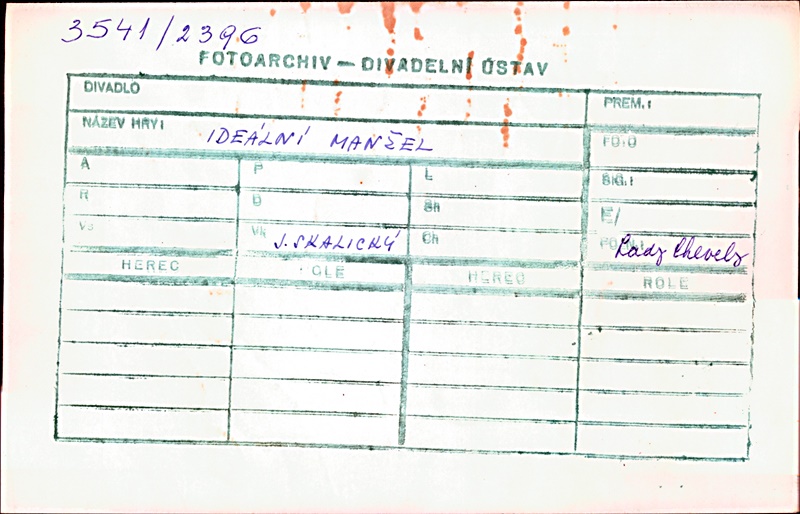 3541/2396
FOTOARCHIV — DIVADELNÍ ÚSTAV
DIVADLO PREM.:
NÁZEV HRY: IDEÁLNÍ MANŽEL FOTO
A P L SIG.:
R D Sh E/
Vs Vk J. SKALICKÝ Ch Lady Chevely
HEREC OLE HEREC ROLE